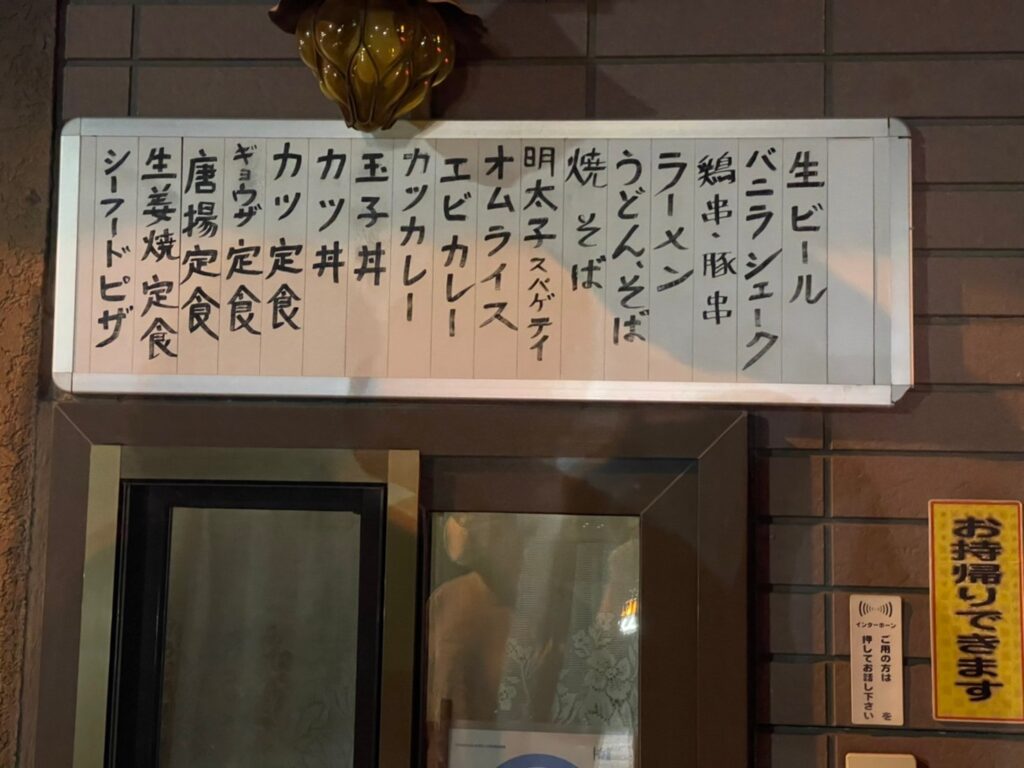 生ビール
バニラシェーク
鶏串、豚串
ラーメン
うどん、そば
焼そば
明太子スパゲテイ
オムライス
エビカレー
カツカレー
玉子丼
カツ丼
カツ定食
ギョウザ定食
唐揚定食
生姜焼定食
シーフードピザ
お持帰りできます
インターホーン
ご用の方は
押してお話し下さい
を